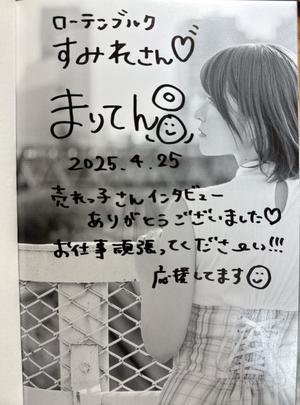 ローテンブルク
すみれさん♡
まりてん
2025.4.25
売れっ子さんインタビュー
ありがとうございました♡
お仕事頑張ってくださーい!!!
応援してます☺